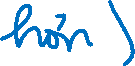 hơn )